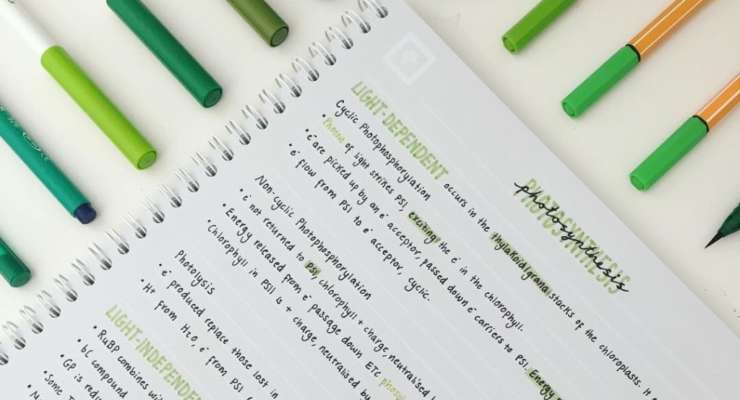 PHOTOSYNTHESIS
photosynthesis
LIGHT-DEPENDENT occurs in the thylakoid/grana stacks of the chloroplasts. It
Cyclic Photophosphorylation
• Photon of light strikes PSI, exciting the e⁻ in the chlorophyll.
• e⁻ are picked up by an e⁻ acceptor, passed down e⁻ carriers to PSI. Energy
• e⁻ flow from PSI to e⁻ acceptor, cyclic.
Non-cyclic Photophosphorylation
• e⁻ not returned to PSI, chlorophyll + charge, neutralised
• Energy released from e⁻ passage down ETC
• Chlorophyll in PSII is + charge, neutralised by
Photolysis
• e⁻ produced replace those lost in
• H⁺ from H₂O, e⁻ from PSI
LIGHT-INDEPENDENT
• RuBP combines
• 6C compound
• GP is
• Some